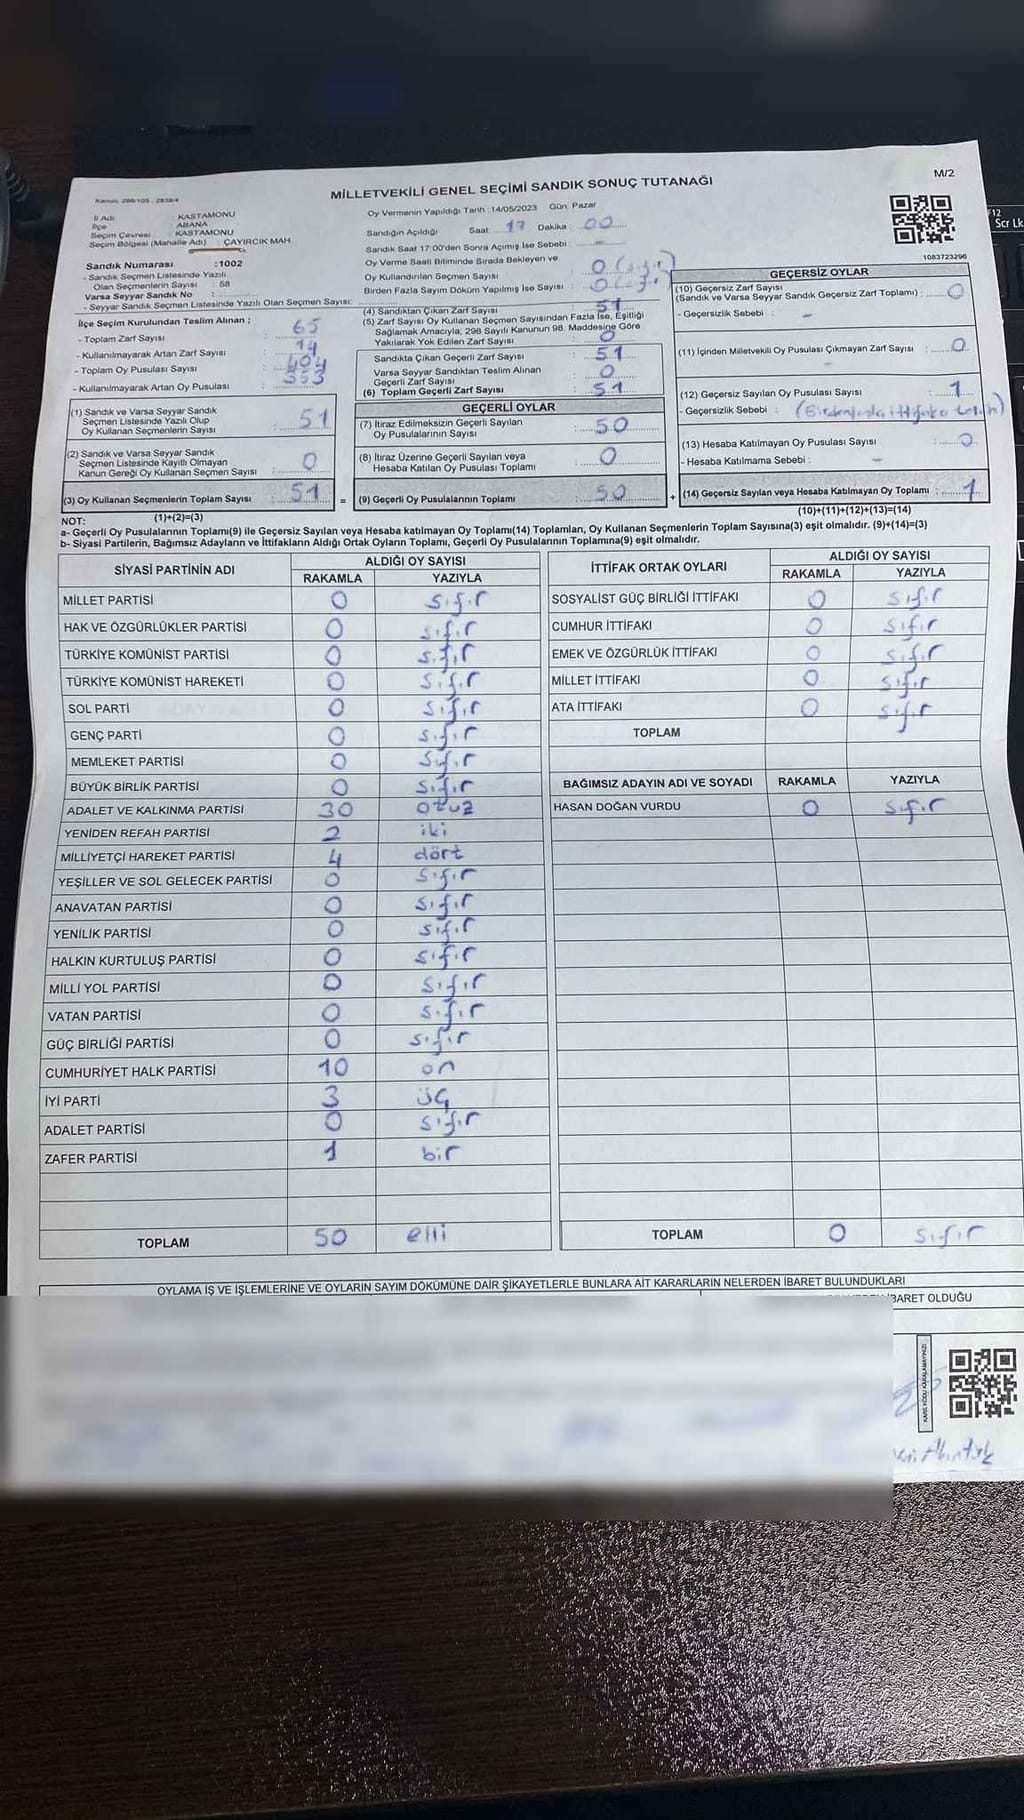 M/2
MİLLETVEKİLİ GENEL SEÇİMİ SANDIK SONUÇ TUTANAĞI
İl Adı : KASTAMONU
İlçe : ABANA
Seçim Çevresi : KASTAMONU
Seçim Bölgesi (Mahalle Adı) : ÇAYIRCIK MAH.
Sandık Numarası :1002
- Sandık Seçmen Listesinde Yazılı
Olan Seçmenlerin Sayısı : 58
Varsa Seyyar Sandık No :
- Seyyar Sandık Seçmen Listesinde Yazılı Olan Seçmen Sayısı:
Oy Vermenin Yapıldığı Tarih :14/05/2023 Gün: Pazar
Sandığın Açıldığı Saat: 17 Dakika : 00
Sandık Saat 17:00'den Sonra Açımış İse Sebebi :
Oy Verme Saati Bitiminde Sırada Bekleyen ve
Oy Kullandırılan Seçmen Sayısı : 0 (sıfır)
Birden Fazla Sayım Döküm Yapılmış İse Sayısı : 0
1083723296
İlçe Seçim Kurulundan Teslim Alınan ;
- Toplam Zarf Sayısı : 65
- Kullanılmayarak Artan Zarf Sayısı : 14
- Toplam Oy Pusulası Sayısı : 404
- Kullanılmayarak Artan Oy Pusulası : 353
(1) Sandık ve Varsa Seyyar Sandık
Seçmen Listesinde Yazılı Olup
Oy Kullanan Seçmenlerin Sayısı : 51
(2) Sandık ve Varsa Seyyar Sandık
Seçmen Listesinde Kayıtlı Olmayan
Kanun Gereği Oy Kullanan Seçmen Sayısı : 0
(3) Oy Kullanan Seçmenlerin Toplam Sayısı : 51
(1)+(2)=(3)
(4) Sandıktan Çıkan Zarf Sayısı : 51
(5) Zarf Sayısı Oy Kullanan Seçmen Sayısından Fazla İse, Eşitliği
Sağlamak Amacıyla; 298 Sayılı Kanunun 98. Maddesine Göre
Yakılarak Yok Edilen Zarf Sayısı : 0
Sandıkta Çıkan Geçerli Zarf Sayısı : 51
Varsa Seyyar Sandıktan Teslim Alınan
Geçerli Zarf Sayısı : 0
(6) Toplam Geçerli Zarf Sayısı : 51
GEÇERLİ OYLAR
(7) İtiraz Edilmeksizin Geçerli Sayılan
Oy Pusulalarının Sayısı : 50
(8) İtiraz Üzerine Geçerli Sayılan veya
Hesaba Katılan Oy Pusulası Toplamı : 0
= (9) Geçerli Oy Pusulalarının Toplamı : 50
GEÇERSİZ OYLAR
(10) Geçersiz Zarf Sayısı
(Sandık ve Varsa Seyyar Sandık Geçersiz Zarf Toplamı) : 0
- Geçersizlik Sebebi : -
(11) İçinden Milletvekili Oy Pusulası Çıkmayan Zarf Sayısı : 0
(12) Geçersiz Sayılan Oy Pusulası Sayısı : 1
- Geçersizlik Sebebi : (Birden fazla ittifaka
(13) Hesaba Katılmayan Oy Pusulası Sayısı : 0
- Hesaba Katılmama Sebebi : -
+ (14) Geçersiz Sayılan veya Hesaba Katılmayan Oy Toplamı : 1
(10)+(11)+(12)+(13)=(14)
NOT:
a- Geçerli Oy Pusulalarının Toplamı(9) ile Geçersiz Sayılan veya Hesaba katılmayan Oy Toplamı(14) Toplamları, Oy Kullanan Seçmenlerin Toplam Sayısına(3) eşit olmalıdır. (9)+(14)=(3)
b- Siyasi Partilerin, Bağımsız Adayların ve İttifakların Aldığı Ortak Oyların Toplamı, Geçerli Oy Pusulalarının Toplamına(9) eşit olmalıdır.
SİYASİ PARTİNİN ADI ALDIĞI OY SAYISI
RAKAMLA YAZIYLA
MİLLET PARTİSİ 0 sıfır
HAK VE ÖZGÜRLÜKLER PARTİSİ 0 sıfır
TÜRKİYE KOMÜNİST PARTİSİ 0 sıfır
TÜRKİYE KOMÜNİST HAREKETİ 0 sıfır
SOL PARTİ 0 sıfır
GENÇ PARTİ 0 sıfır
MEMLEKET PARTİSİ 0 sıfır
BÜYÜK BİRLİK PARTİSİ 0 sıfır
ADALET VE KALKINMA PARTİSİ 30 otuz
YENİDEN REFAH PARTİSİ 2 iki
MİLLİYETÇİ HAREKET PARTİSİ 4 dört
YEŞİLLER VE SOL GELECEK PARTİSİ 0 sıfır
ANAVATAN PARTİSİ 0 sıfır
YENİLİK PARTİSİ 0 sıfır
HALKIN KURTULUŞ PARTİSİ 0 sıfır
MİLLİ YOL PARTİSİ 0 sıfır
VATAN PARTİSİ 0 sıfır
GÜÇ BİRLİĞİ PARTİSİ 0 sıfır
CUMHURİYET HALK PARTİSİ 10 on
İYİ PARTİ 3 üç
ADALET PARTİSİ 0 sıfır
ZAFER PARTİSİ 1 bir
TOPLAM 50 elli
İTTİFAK ORTAK OYLARI ALDIĞI OY SAYISI
RAKAMLA YAZIYLA
SOSYALİST GÜÇ BİRLİĞİ İTTİFAKI 0 sıfır
CUMHUR İTTİFAKI 0 sıfır
EMEK VE ÖZGÜRLÜK İTTİFAKI 0 sıfır
MİLLET İTTİFAKI 0 sıfır
ATA İTTİFAKI 0 sıfır
TOPLAM
BAĞIMSIZ ADAYIN ADI VE SOYADI RAKAMLA YAZIYLA
HASAN DOĞAN VURDU 0 sıfır
TOPLAM 0 sıfır
OYLAMA İŞ VE İŞLEMLERİNE VE OYLARIN SAYIM DÖKÜMÜNE DAİR ŞİKAYETLERLE BUNLARA AİT KARARLARIN NELERDEN İBARET BULUNDUKLARI
İBARET OLDUĞU
KARE KODU KARALAMAYINIZ!
F12
Scr Lk